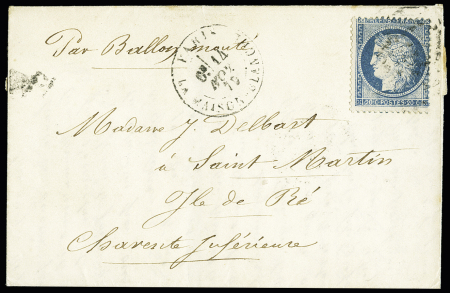 Par Ballon monté
PARIS
20 C. POSTES 20 C.
Madame J. Delbart
à Saint Martin
Ile de Ré
Charente Inférieure